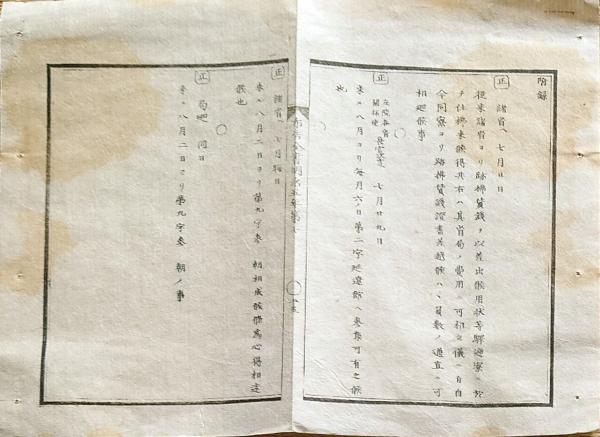 附録
正 諸省ヘ 七月廿日
従来諸省ヨリ跡拂賃銭ヲ以差出候用状等駅逓寮ニ於
テ仕拂来候得共右ハ其省局ノ費用ニ可相立儀ニ自
今同寮ヨリ跡拂賃銭證書差越候ハヽ員数ノ通直ニ可
相廻候事
正 左院各省 開拓使 長官 七月廿九日
来ル八月ヨリ毎月六ノ日第二字延遼館ヘ参集可有之候
也
布告全書明治五年
正 諸省ヘ 七月 日
来ル八月二日ヨリ第九字参 朝相成候條為心得相達
候也
正 同日
来ル八月二日ヨリ第九字参 朝ノ事